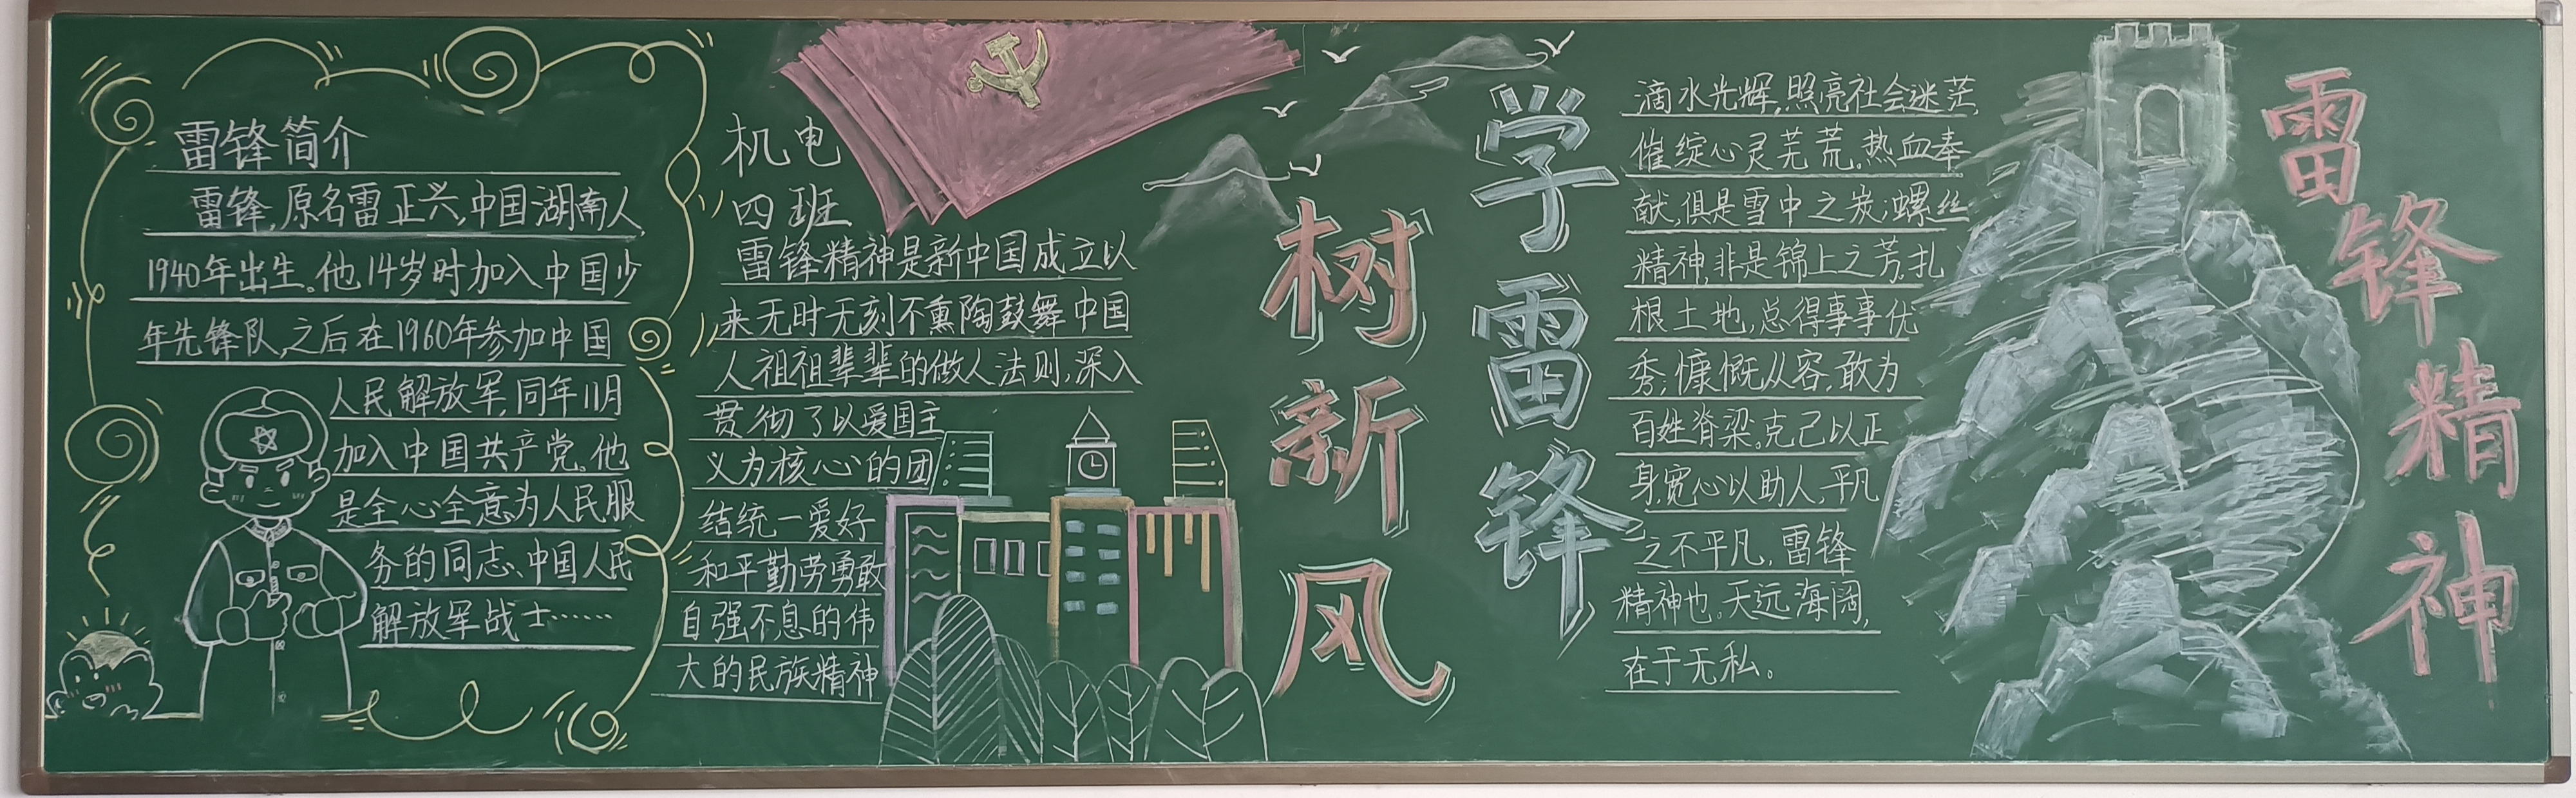 雷锋简介
雷锋,原名雷正兴,中国湖南人,
1940年出生。他14岁时加入中国少
年先锋队,之后在1960年参加中国
人民解放军,同年11月
加入中国共产党。他
是全心全意为人民服
务的同志、中国人民
解放军战士……
机电
四班
雷锋精神是新中国成立以
来无时无刻不熏陶鼓舞中国
人祖祖辈辈的做人法则,深入
贯彻了以爱国主
义为核心的团
结统一爱好
和平勤劳勇敢
自强不息的伟
大的民族精神
学雷锋
树新风
滴水光辉,照亮社会迷茫,
催绽心灵芜荒。热血奉
献,俱是雪中之炭;螺丝
精神,非是锦上之芳。扎
根土地,总得事事优
秀;慷慨从容,敢为
百姓脊梁。克己以正
身,宽心以助人,平凡
之不平凡,雷锋
精神也。天远海阔,
在于无私。
雷锋精神